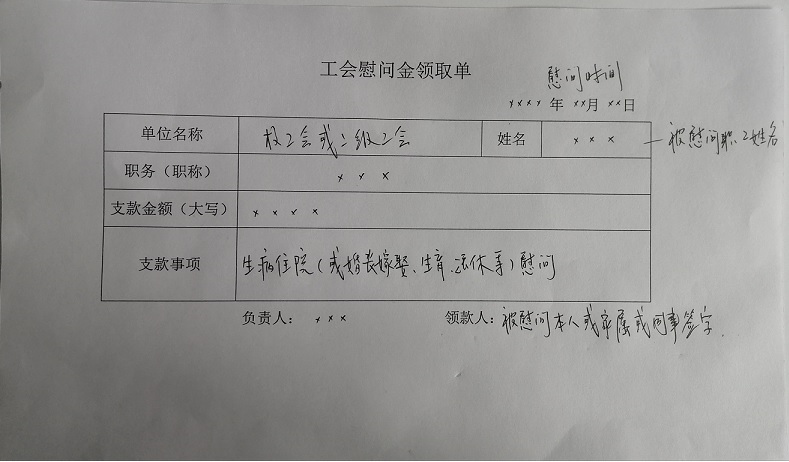 工会慰问金领取单
慰问时间
×××× 年 ××月 ××日
单位名称 校工会或二级工会 姓名 ××× —被慰问职工姓名
职务（职称） ×××
支款金额（大写） ××××
支款事项 生病住院（或婚丧嫁娶、生育、退休等）慰问
负责人： ××× 领款人：被慰问本人或家属或同事签字.